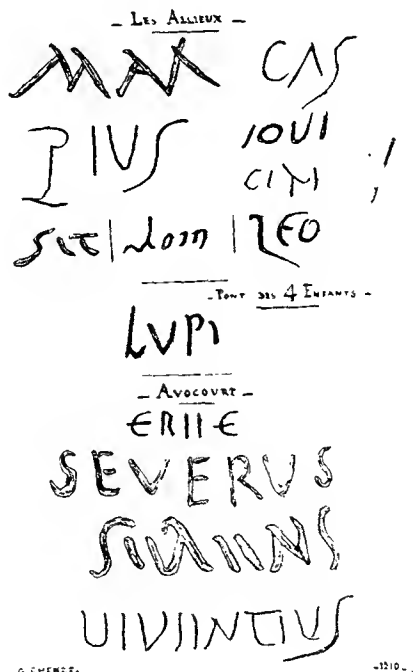 - Les Allieux -
MAX CAS
PIUS IOUI
CIM
LEO
- Pont des 4 Enfants -
LVPI
- Avocourt -
ERIIE
SEVERUS
UIVIINTIUS
G. CHENET. -1910-